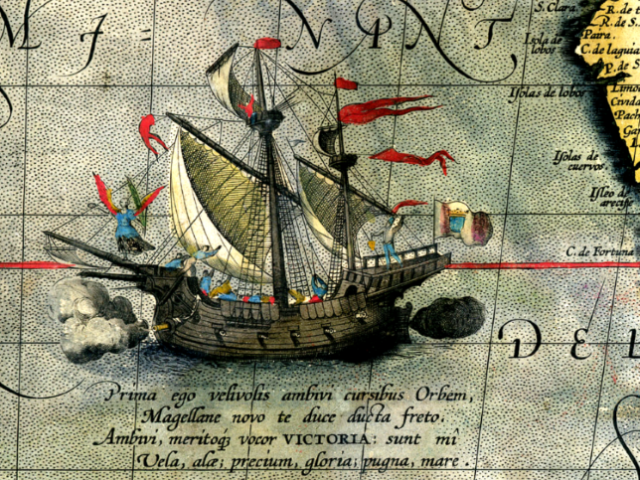 M I = N P N T
S. Clara.
R. de t
R. de S.
Paira.
Isola de
lobos
C. de laguia
P. de S
Isolas de lobos
Limo
Civida
Pach
Ga
Isolas de
cuervos.
Isleo de
arecife
C. de Fortuna
D E L
Prima ego velivolis ambivi cursibus Orbem,
Magellane novo te duce ducta freto.
Ambivi, meritoq; vocor VICTORIA: sunt mi
Vela, alæ; precium, gloria; pugna, mare.